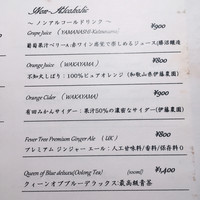 Non-Alcohol
～ ノンアルコールドリンク ～
Grape Juice ( YAMANASHI-Katsunuma) ¥900
葡萄果汁ベリーA:赤ワイン感覚で楽しめるジュース(勝沼醸造
Orange Juice ( WAKAYAMA ) ¥800
不知火しぼり：100%ピュアオレンジ (和歌山県伊藤農園)
Orange Cider ( WAKAYAMA ) ¥900
有田みかんサイダー：果汁50%の濃密なサイダー(伊藤農園)
Fever-Tree Premium Ginger Ale ( UK ) ¥800
プレミアム ジンジャー エール：人工甘味料/香料/保存料０
¥1,400
Queen of Blue deluxe(Oolong Tea) (500ml)
クィーンオブブルーデラックス:最高級青茶